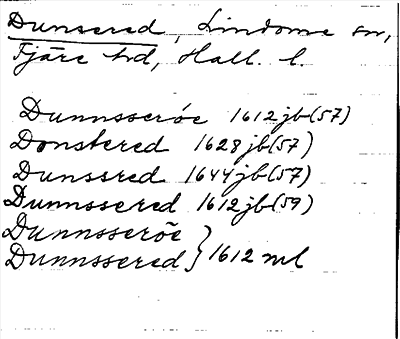 Dunsered, Lindome sn,
Fjäre hd, Hall. l.
Dunnsseröe 1612 jb (57)
Donstered 1628 jb (57)
Dunssred 1644 jb (57)
Dunnssered 1612 jb (59)
Dunnsseröe
Dunnssered } 1612 ml